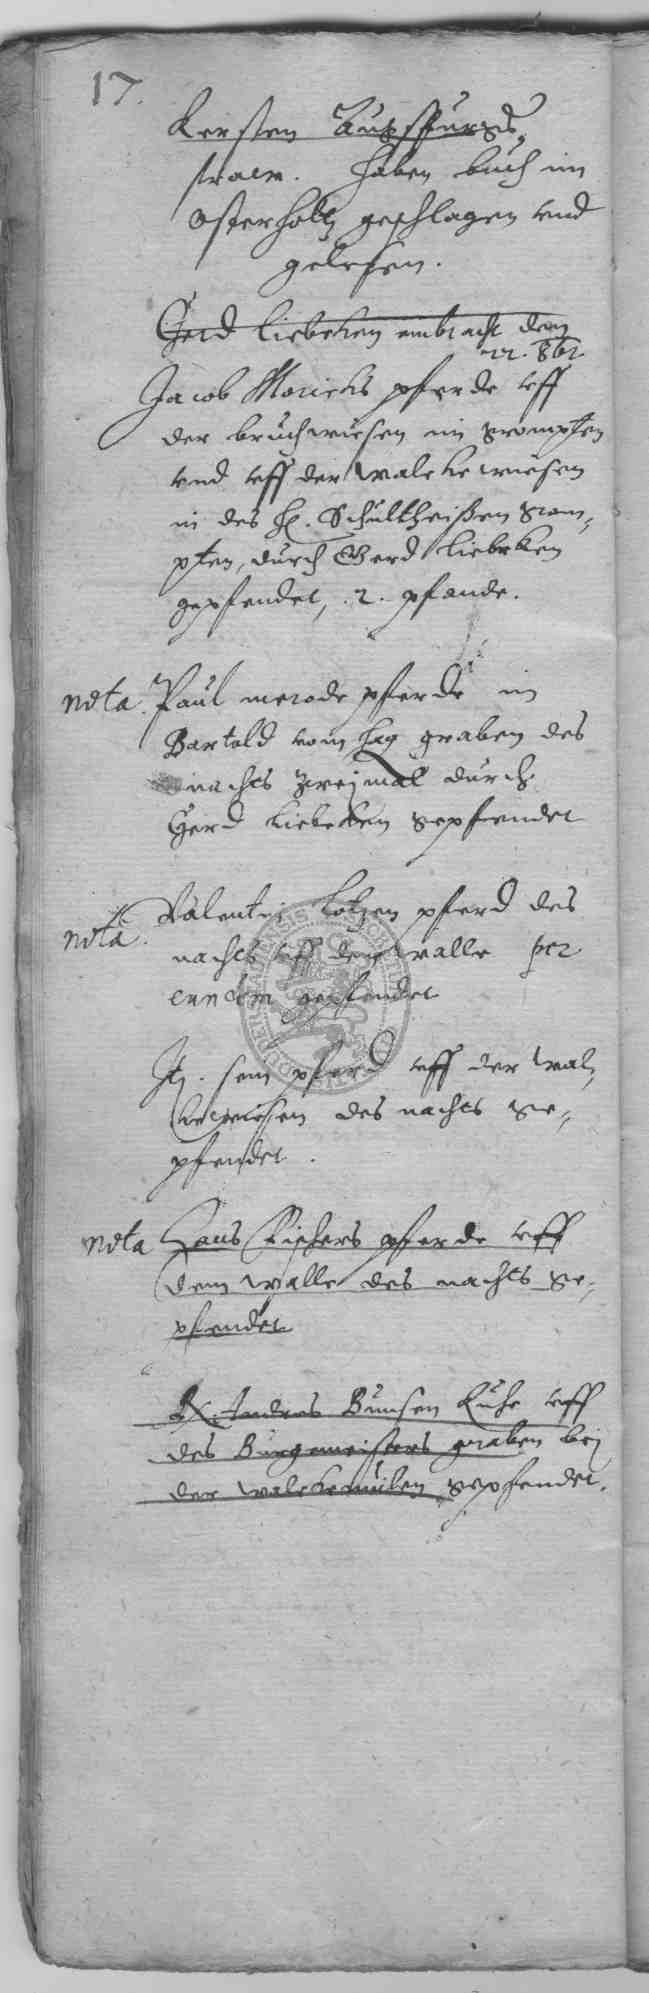 17.
Kersten
fraew. haben buch im
Osterholtz geschlagen vnd
gelesen.
Gerd Liebeken einbracht den
22. 8br
Jacob Morichs pferde vff
der bruchwiesen im grompten
vnd vff der Walckewiesen
in des H. Schultheißen grom,
pten, durch Gerd Liebeken
gepfendet, .2. pfande.
nota. Paul merode pferde im
Bartold vom Hag graben des
nachts zweimal durch
Gerd Liebeken gepfendet
nota. Valentin Lotzen pferd des
nachts vff dem walle per
eundem gepfendet
It. sein pferd vff der Wal,
kewiesen des nachts ge,
pfendet.
nota Hans Fischers pferde vff
dem Walle des nachts ge,
pfendet
Andres Bunsen Kuhe vff
des Burgemeisters graben bei
der walckemulen gepfendet.